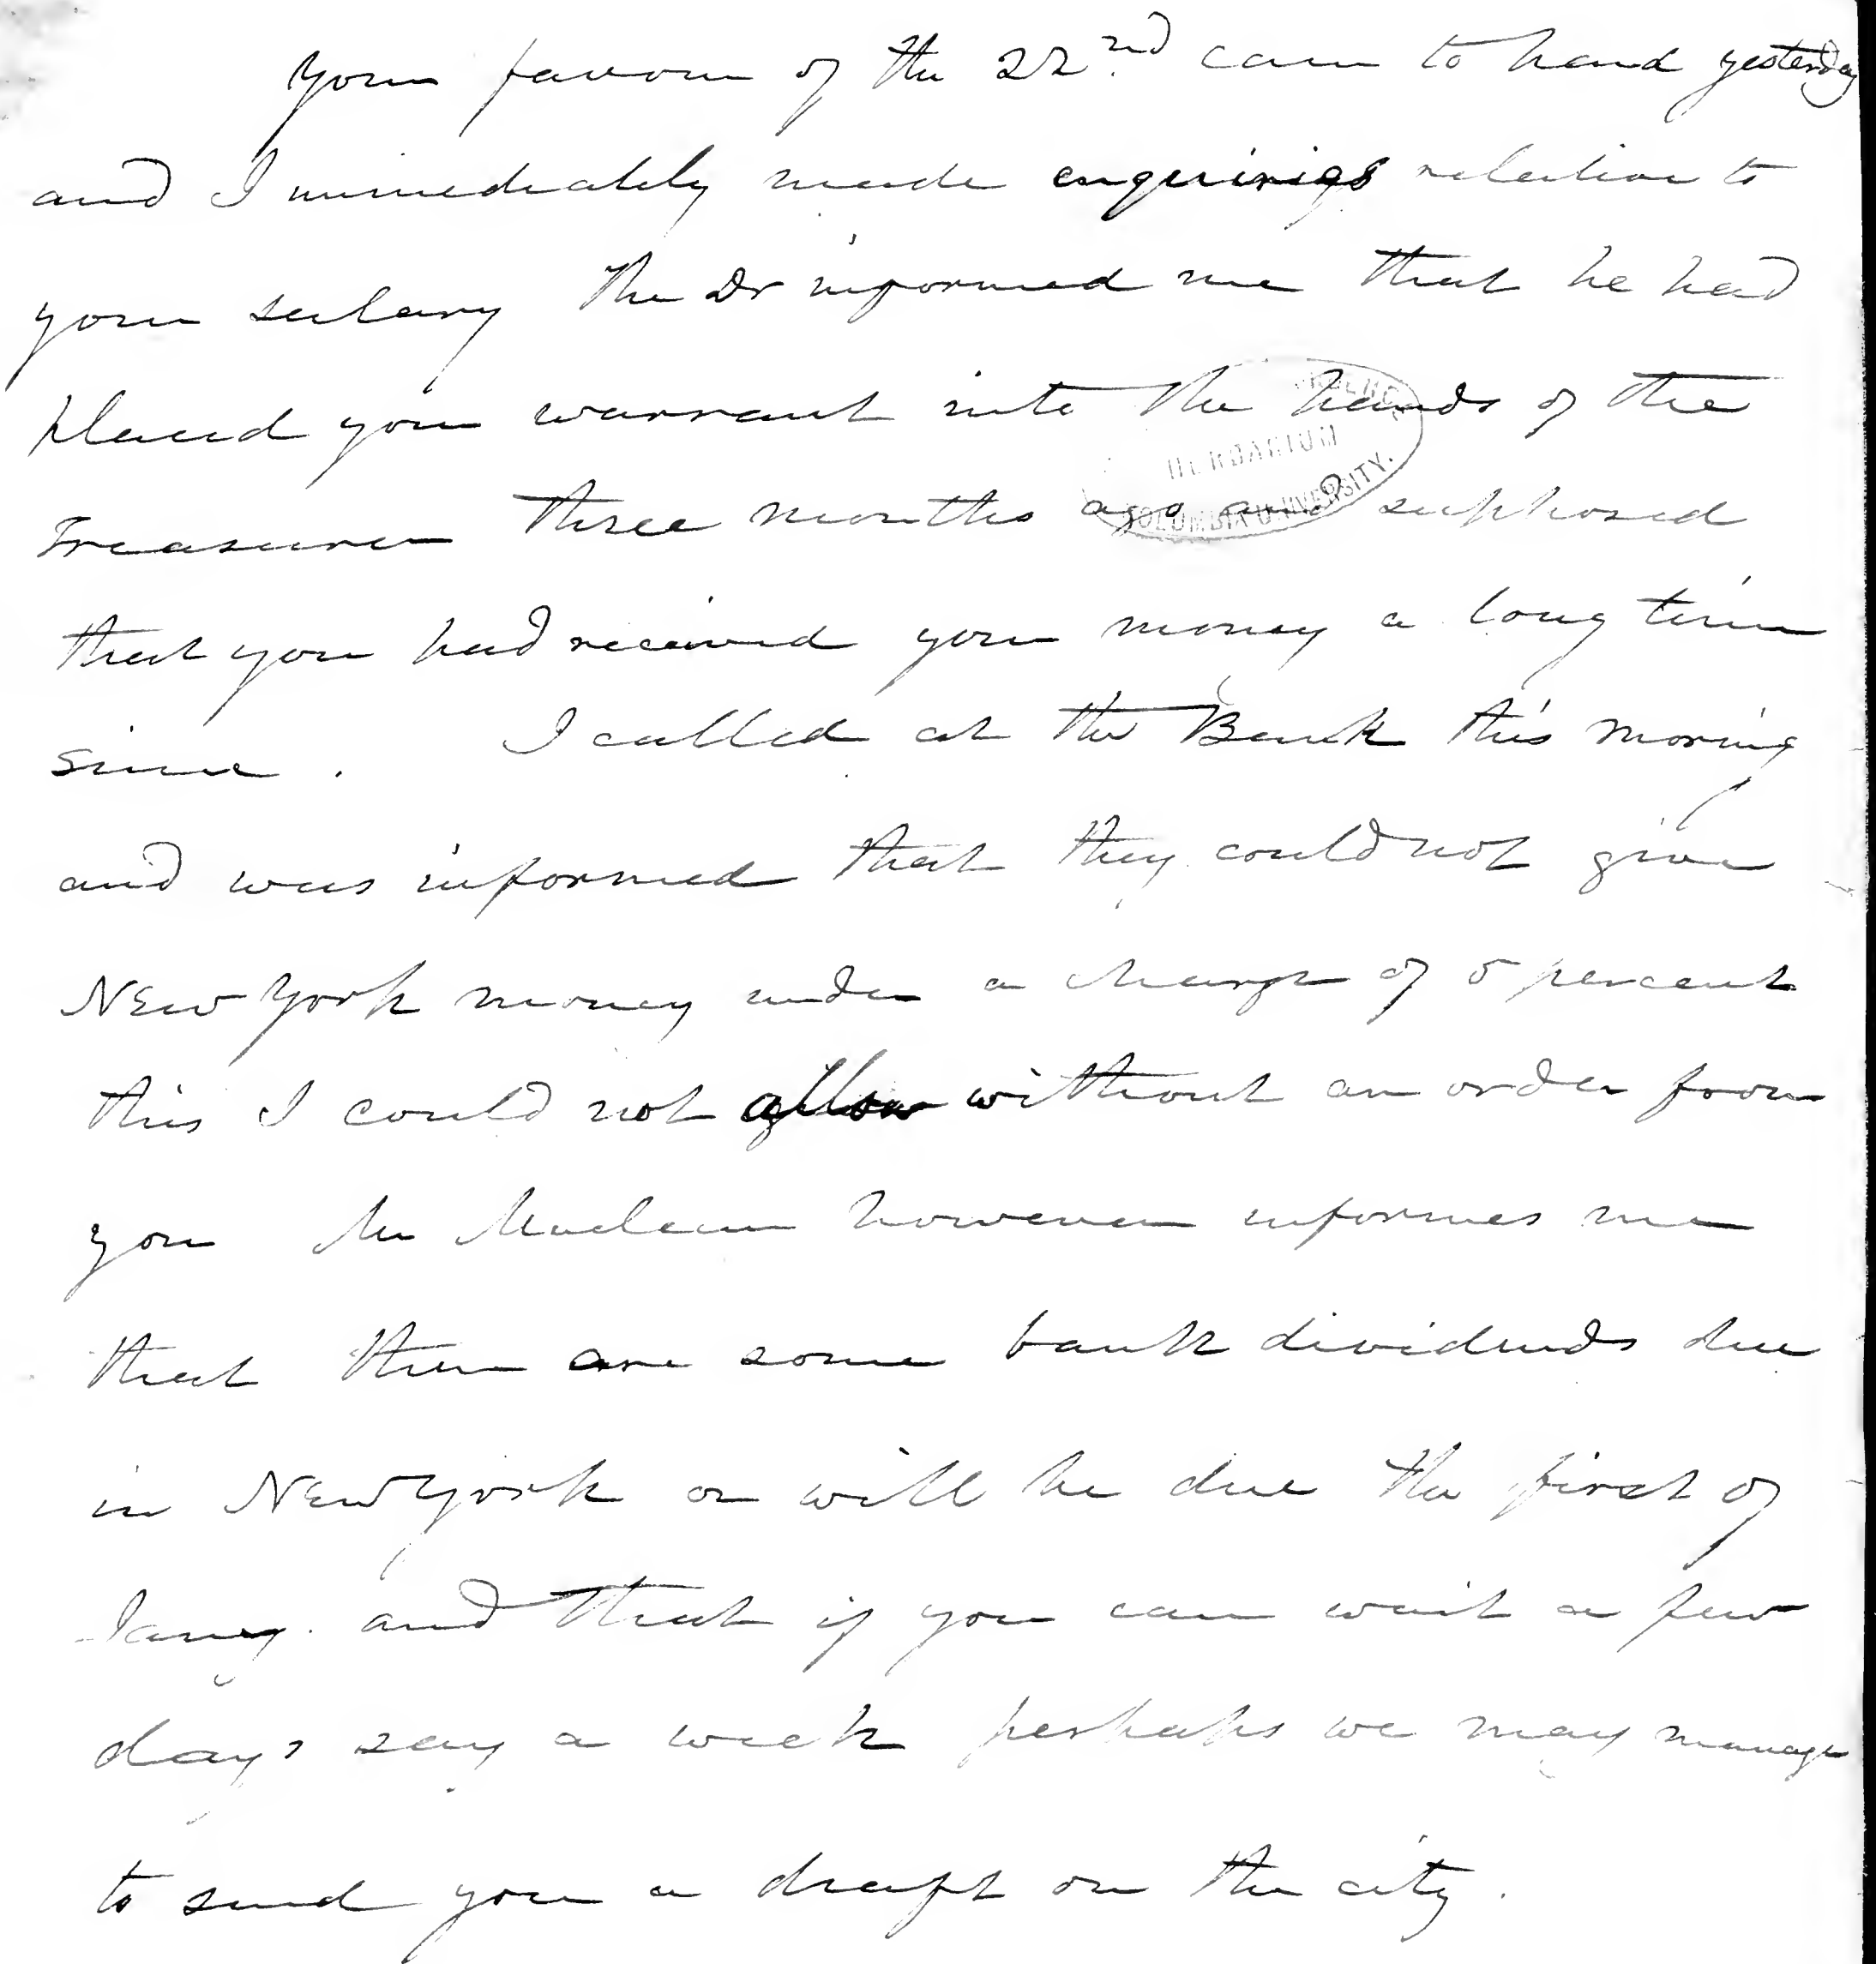 Your favour of the 22nd came to hand yesterday
and I immediately made enquiries relative to
your salary the Dr informed me that he had
placed your warrant into the hands of the
HERBARIUM
COLUMBIA UNIVERSITY.
Treasurer three months ago and supposed
that you had received your money a long time
since. I called at the Bank this morning
and was informed that they could not give
New York money under a charge of 5 percent
this I could not allow without an order from
you Mr Maclean however informes me
that there are some bank dividends due
in New York or will be due the first of
Jany. and that if you can wait a few
days say a week perhaps we may manage
to send you a draft on the city.